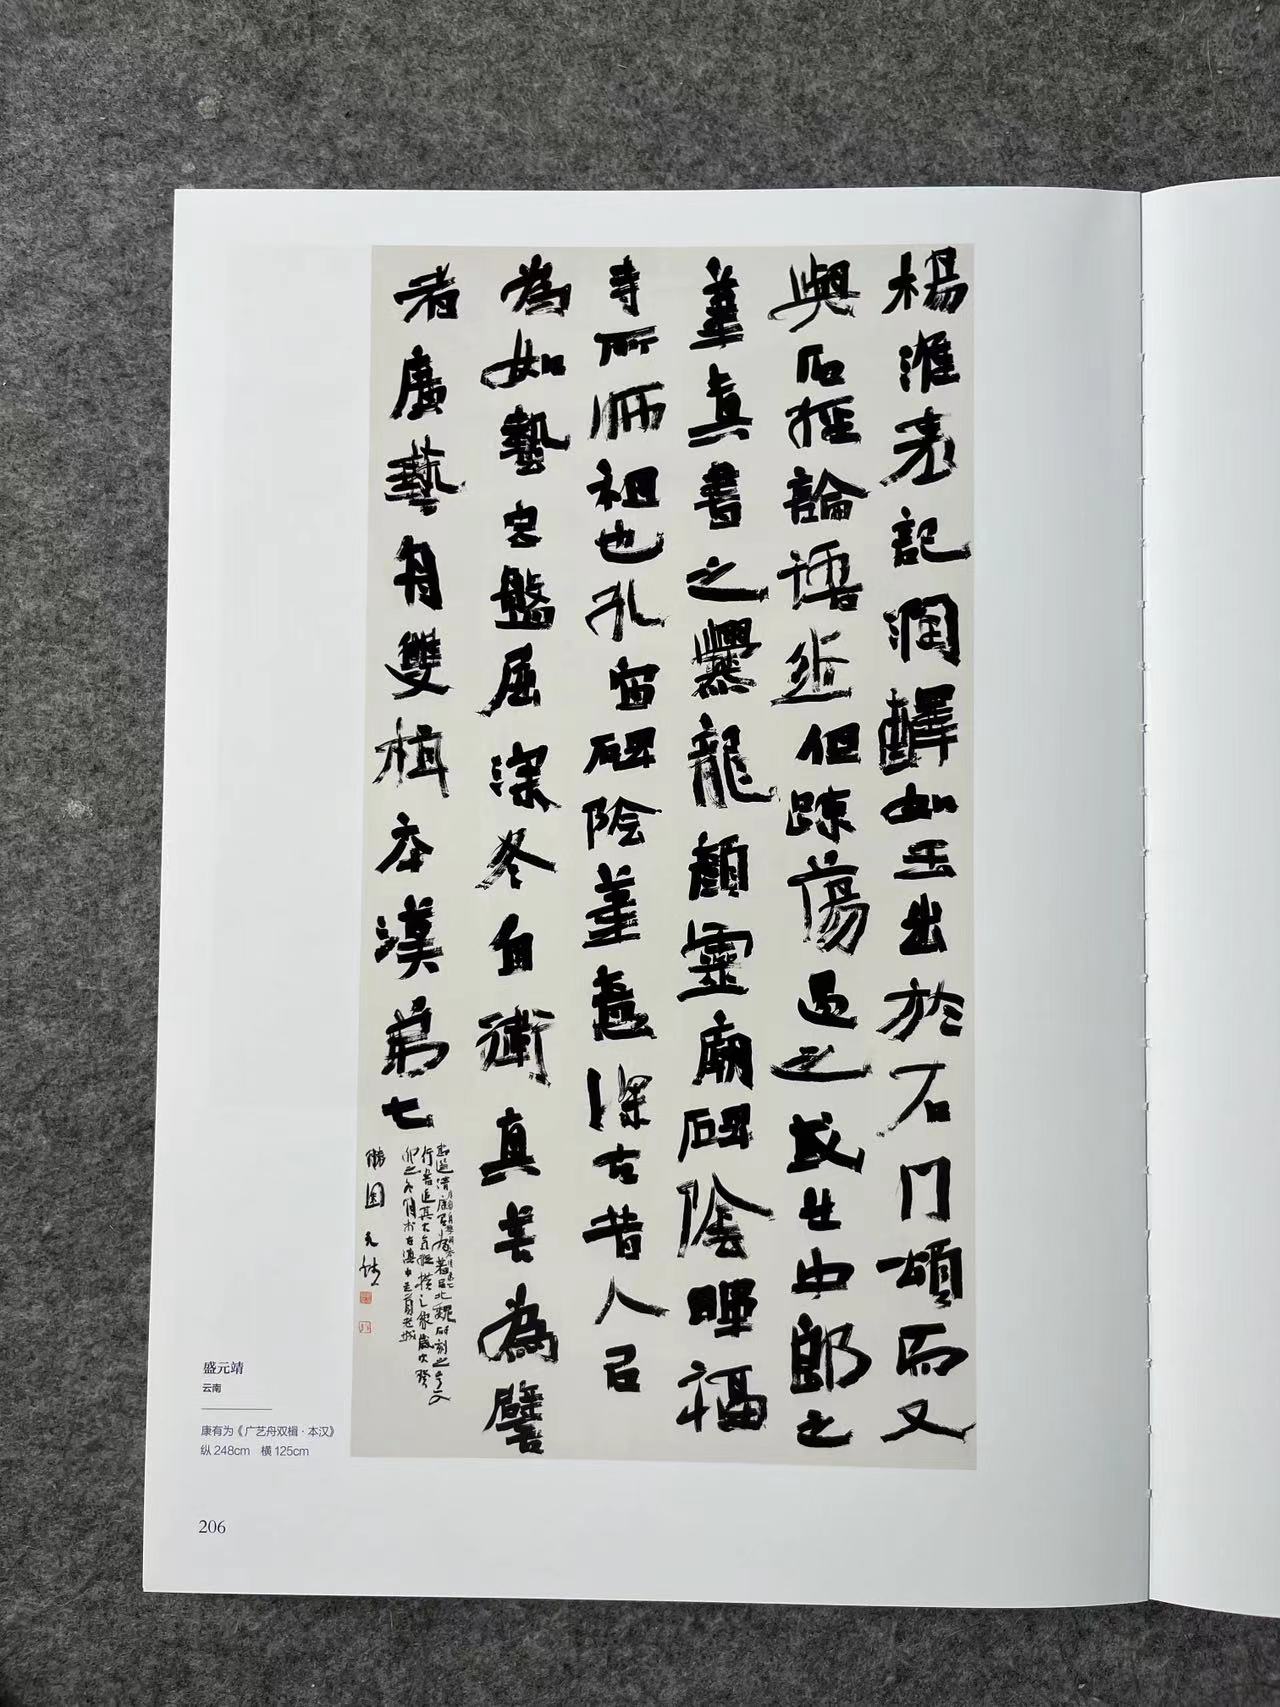 楊淮表記潤醳如玉出於石門頌而又
與石經論語近但踈蕩過之或出中郎之
筆真書之爨龍顏靈廟碑陰暉福
寺所師祖也孔宙碑陰筆意深古昔人以
為如蟄虫盤屈深冬自衛真善為譬
者廣藝舟雙楫本漢弟七
北魏碑刻之
行書
園元靖
盛元靖
云南
康有为《广艺舟双楫·本汉》
纵 248cm 横 125cm
206